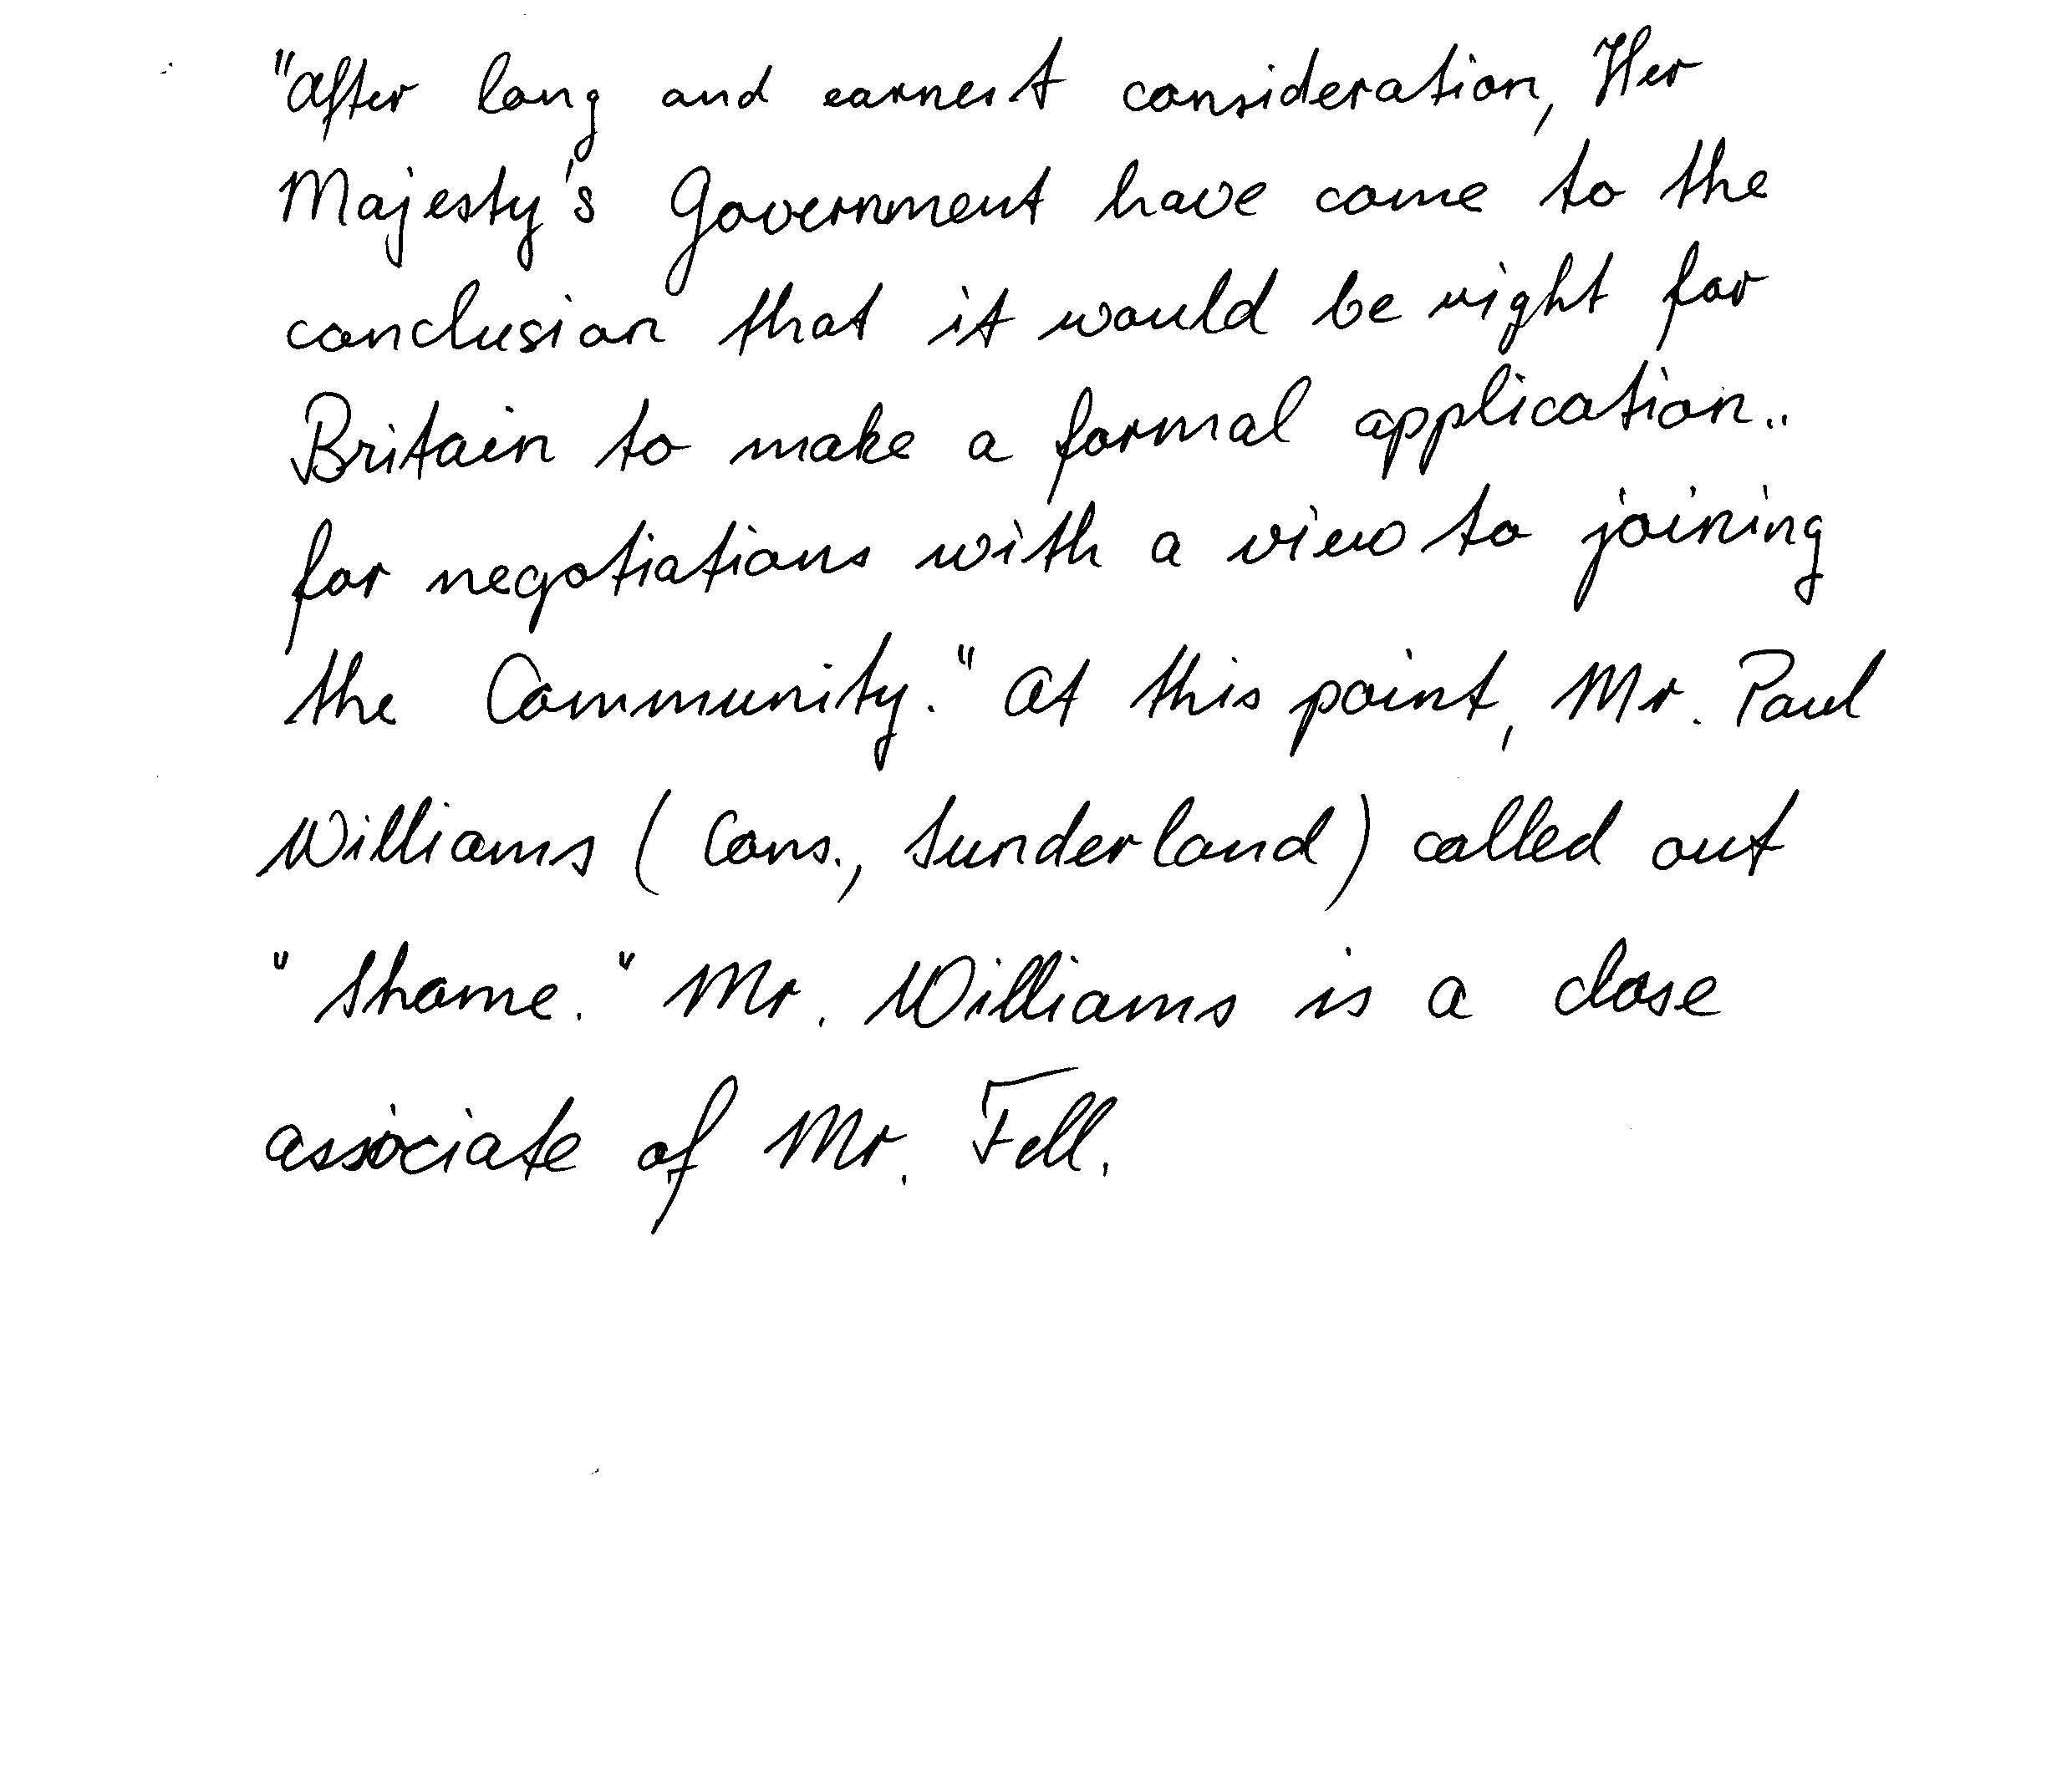 "After long and earnest consideration, Her
Majesty's Government have come to the
conclusion that it would be right for
Britain to make a formal application..
for negotiations with a view to joining
the Community." At this point, Mr. Paul
Williams (Cons., Sunderland) called out
"Shame." Mr. Williams is a close
associate of Mr. Fell.